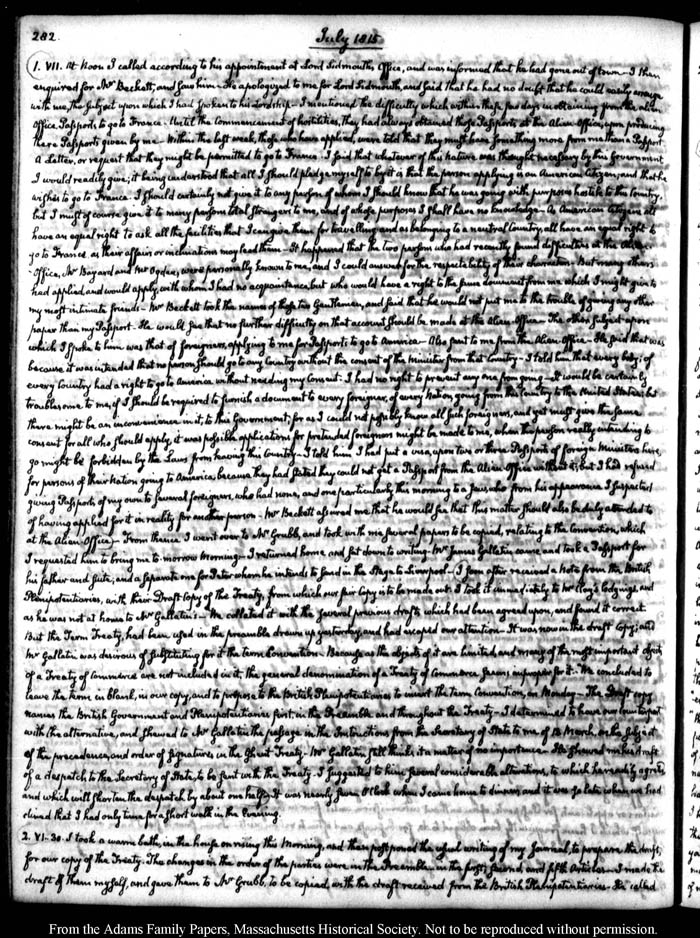 282.
July 1815
1. VII. At Noon I called according to his appointment at Lord Sidmouth's Office, and was informed that he had gone out of town. I then
enquired for Mr Beckett, and saw him. He apologized to me for Lord Sidmouth, and said that he had no doubt that he could easily arrange
with me, the subject upon which I had spoken to his Lordship. I mentioned the difficulty which within these few days in obtaining from the Alien
Office, Passports, to go to France. Until the commencement of hostilities, they had always obtained those Passports at the Alien Office, upon producing
there Passports given by me. Within the last week, those who have applied, were told that they must have something more from me than a Passport
A Letter, or request that they might be permitted to go to France. I said that whatever of this nature was thought necessary by this Government
I would readily give; it being understood that all I should pledge myself to by it is that the person applying is an American Citizen; and that he
wishes to go to France. I should certainly not give it to any person of whom I should know that he was going with purposes hostile to this Country,
but I must of course give it to many persons total strangers to me, and of whose purposes I shall have no knowledge. As American Citizens all
have an equal right to ask all the facilities that I can give them for travelling and as belonging to a neutral Country, all have an equal right to
go to France as their affairs or inclinations may lead them. It happened that the two persons who had recently found difficulties at the Alien-
Office, Mr Bayard and Mr Ogden, were personally known to me, and I could answer for the respectability of their characters. But many others
had applied and would apply, with whom I had no acquaintance, but who would have a right to the same document from me which I might give to
my most intimate friends. Mr Beckett took the names of these two Gentlemen, and said that he would not put me to the trouble of giving any other
paper than my Passport. He would see that no further difficulty on that account should be made at the Alien-Office. The other subject upon
which I spoke to him was that of foreigners, applying to me for Passports to go to America. Also sent to me from the Alien-Office. He said that was
because it was intended that no person should go to any Country without the consent of the Minister from that Country. I told him that every body; of
every Country had a right to go to America without needing my Consent. I had no right to prevent any one from going. It would be certainly
troublesome to me, if I should be required to furnish a document to every foreigner, of every Nation going from this Country to the United States; but
there might be an inconvenience in it, to this Government; for as I could not possibly know all such foreigners, and yet must give the same
consent for all who should apply, it was possible applications for pretended foreigners might be made to me, when the person really intending to
go might be forbidden by the Laws from leaving this Country. I told him I had put a visa, upon two or three Passports of foreign Ministers here,
for persons of their Nation going to America, because they had stated they could not get a Passport from the Alien Office without it; but I had refused
giving Passports of my own to several foreigners, who had none, and one particularly this morning to a Jew, who from his appearance I suspected
of having applied for it in reality for another person. Mr Beckett assured me that he would see that this matter should also be duly attended to
at the Alien-Office. From thence I went over to Mr Grubb, and took with me several papers to be copied, relating to the Convention, which
I requested him to bring me to-morrow Morning. I returned home, and sat down to writing. Mr James Gallatin came and took a Passport for
his father and suite; and a separate one for Peter whom he intends to send in the Stage to Liverpool. I soon after received a Note from the British
Plenipotentiaries, with their Draft Copy of the Treaty, from which our fair Copy is to be made out. I took it immediately to Mr Clay's lodgings, and
as he was not at home to Mr Gallatin's. We collated it with the several previous drafts which had been agreed upon, and found it correct.
But the Term Treaty, had been used in the preamble drawn up yesterday, and had escaped our attention. It was now in the draft Copy; and
Mr Gallatin was desirous of substituting for it the term Convention. Because as the objects of it are limited, and many of the most important objects
of a Treaty of Commerce are not included in it, the general denomination of a Treaty of Commerce seems improper for it. We concluded to
leave the term in blank, in our copy, and to propose to the British Plenipotentiaries to insert the term Convention, on Monday. The Draft copy
names the British Government and Plenipotentiaries first, in the Preamble and throughout the Treaty. I determined to have our counterpart
with the alternative, and shewed to Mr Gallatin the passage in the Instructions from the Secretary of State to me of 13 March, on the subject
of the precedence, and order of signatures, in the Ghent Treaty. Mr Gallatin still thinks it a matter of no importance. He shewed me his draft
of a despatch to the Secretary of State, to be sent with the Treaty. I suggested to him several considerable alterations, to which he readily agreed
and which will shorten the despatch by about one half. It was nearly seven O'Clock when I came home to dinner, and it was so late when we had
dined that I had only time for a short walk in the Evening.
2. VI-30. I took a warm bath, in the house on rising this Morning, and then postponed the usual writing of my Journal, to prepare the draft,
for our copy of the Treaty. The changes in the order of the parties were in the Preamble, in the first, second, and fifth Articles. I made the
draft of them myself, and gave them to Mr Grubb, to be copied, with the draft received from the British Plenipotentiaries. He called
From the Adams Family Papers, Massachusetts Historical Society. Not to be reproduced without permission.